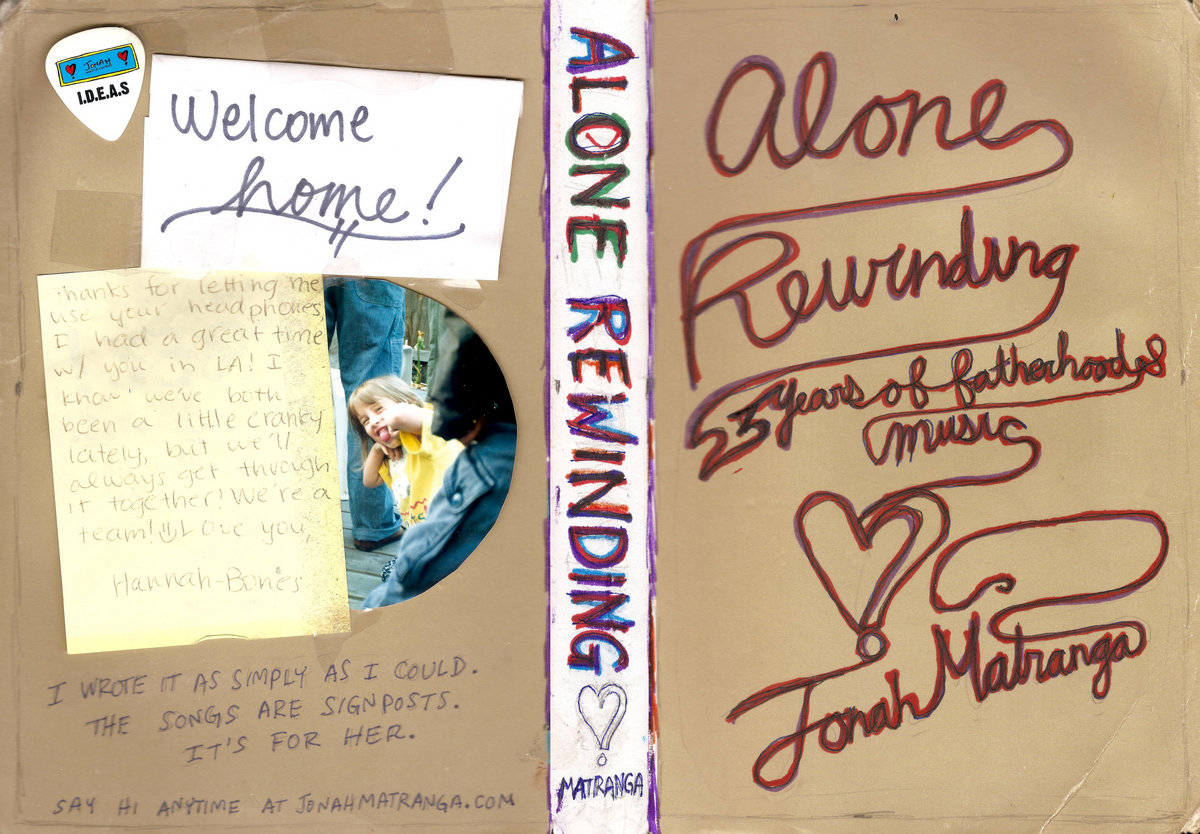 JONAH
I.D.E.A.S
Welcome
home!
Thanks for letting me
use your headphones,
I had a great time
w/ you in LA! I
know we've both
been a little cranky
lately, but we'll
always get through
it together! We're a
team! Love you,
Hannah-Bones
I WROTE IT AS SIMPLY AS I COULD.
THE SONGS ARE SIGNPOSTS.
IT'S FOR HER.
SAY HI ANYTIME AT JONAHMATRANGA.COM
ALONE REWINDING
MATRANGA
Alone
Rewinding
23 years of fatherhood &
music
Jonah Matranga